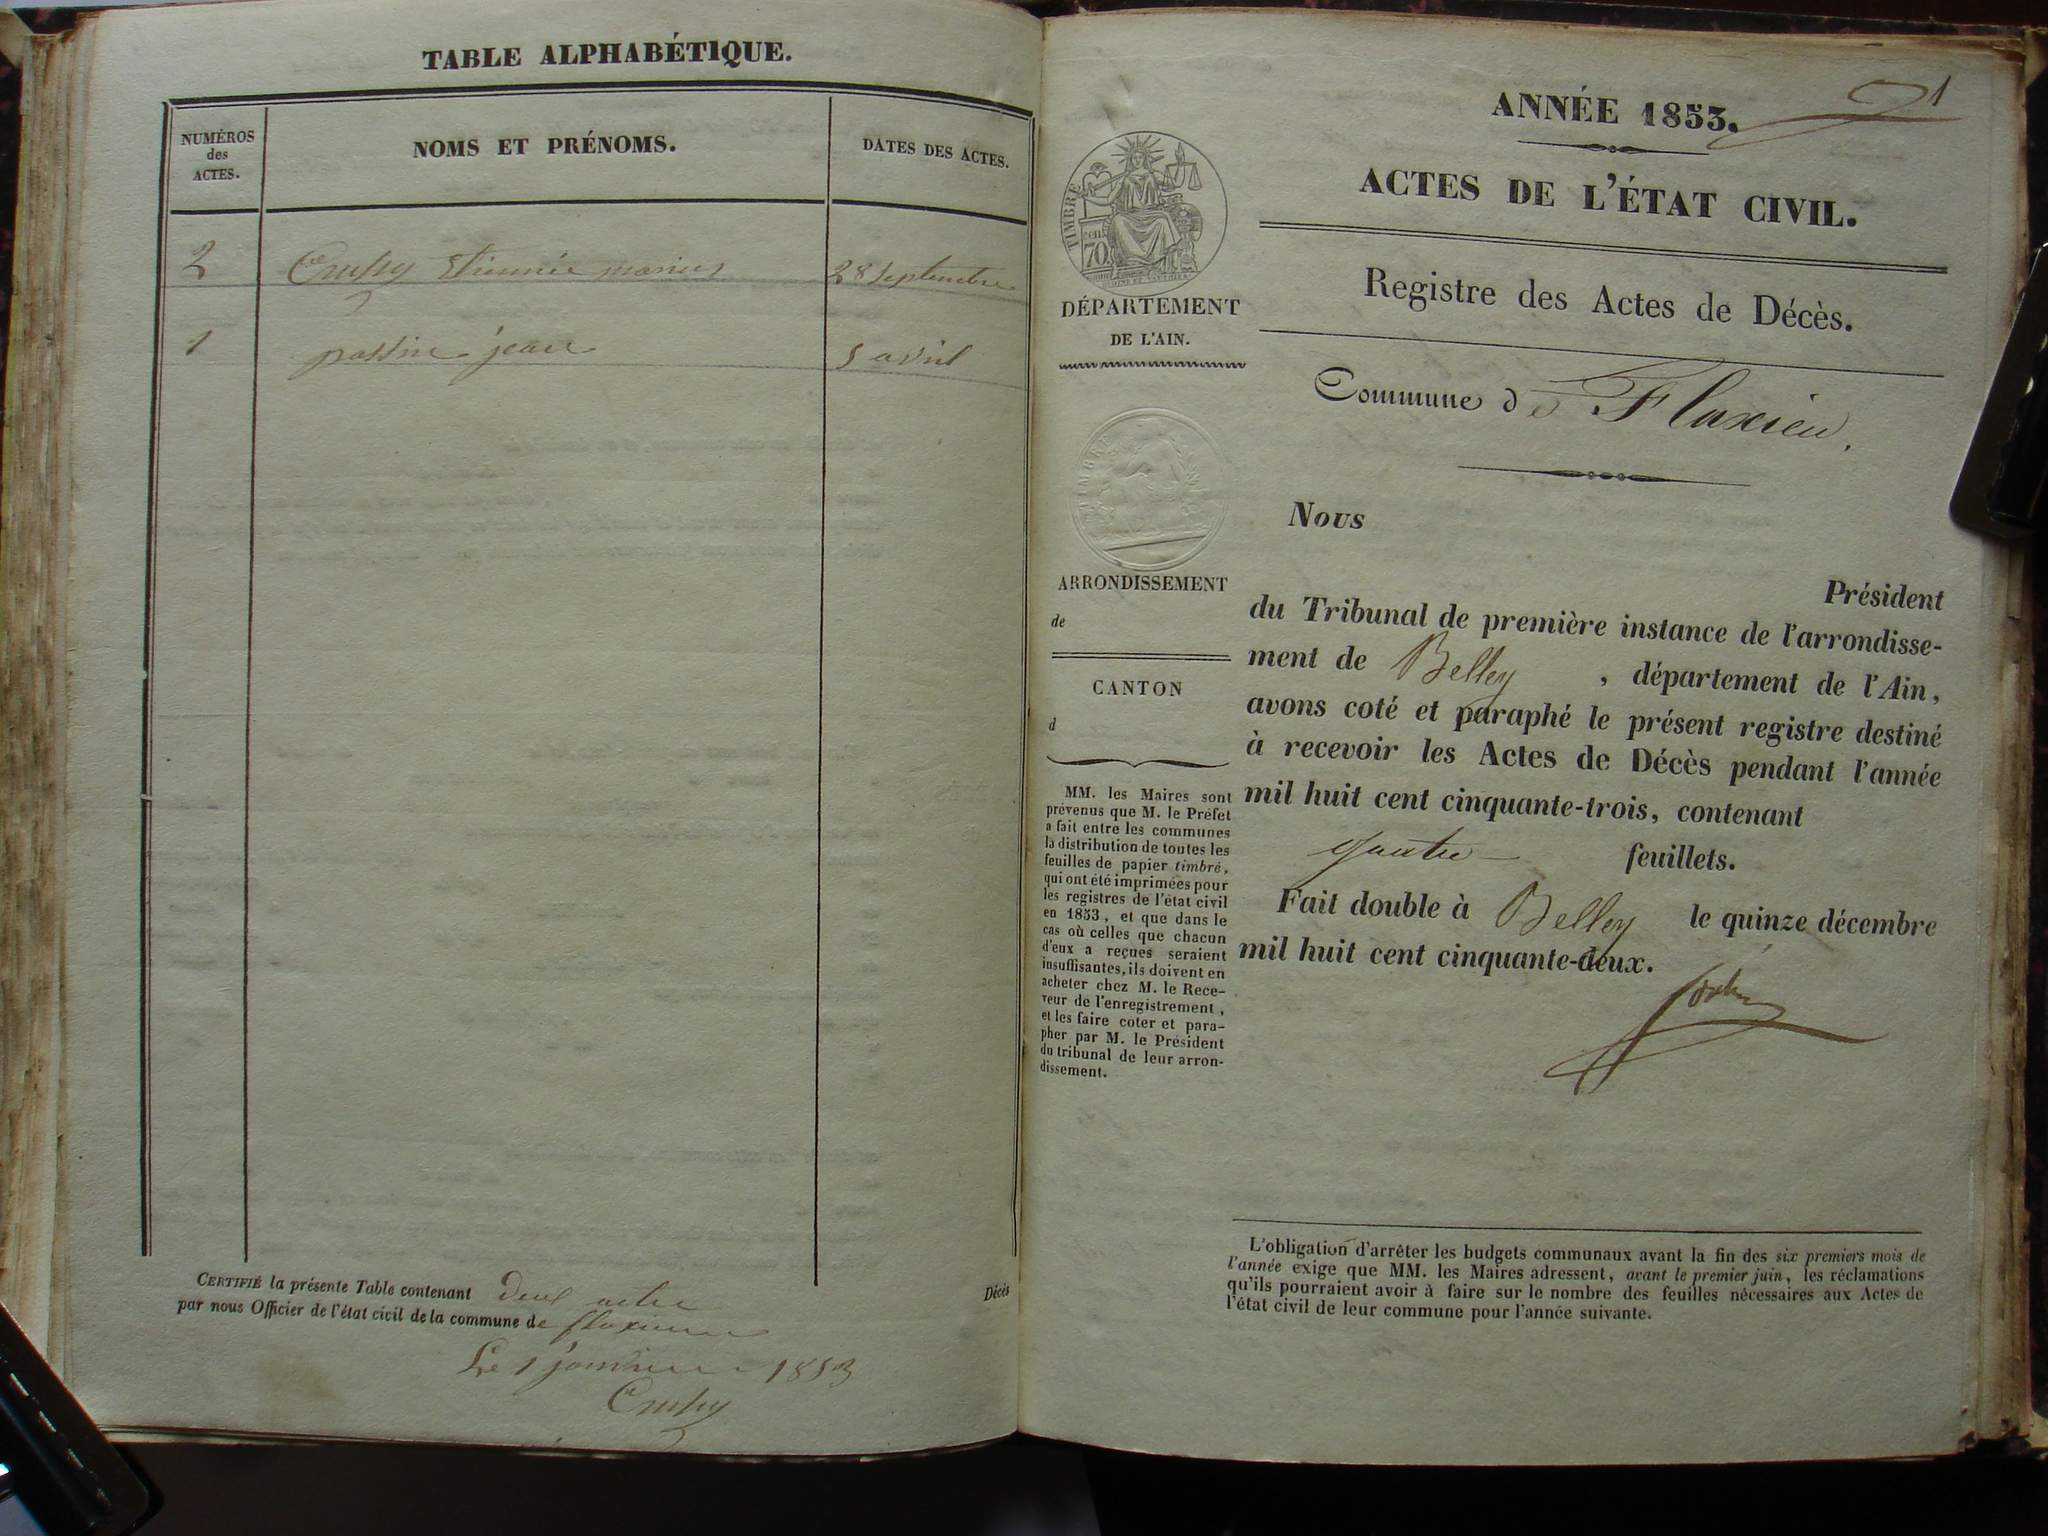 TABLE ALPHABÉTIQUE.
NUMÉROS
des
ACTES.
NOMS ET PRÉNOMS.
DATES DES ACTES.
2 marius 28 septembre
1 jean 5 avril
CERTIFIÉ la présente Table contenant deux actes Décès
par nous Officier de l'état civil de la commune de flaxieu
Le 1 janvier 1853
ANNÉE 1853.
1
ACTES DE L'ÉTAT CIVIL.
Registre des Actes de Décès.
Commune de Flaxieu.
TIMBRE
70
DÉPARTEMENT
DE L'AIN.
TIMBRE
ARRONDISSEMENT
de
CANTON
d
MM. les Maires sont
prévenus que M. le Préfet
a fait entre les communes
la distribution de toutes les
feuilles de papier timbré,
qui ont été imprimées pour
les registres de l'état civil
en 1853, et que dans le
cas où celles que chacun
d'eux a reçues seraient
insuffisantes, ils doivent en
acheter chez M. le Rece-
veur de l'enregistrement,
et les faire coter et para-
pher par M. le Président
du tribunal de leur arron-
dissement.
Nous
Président
du Tribunal de première instance de l'arrondisse-
ment de Belley, département de l'Ain,
avons coté et paraphé le présent registre destiné
à recevoir les Actes de Décès pendant l'année
mil huit cent cinquante-trois, contenant
quatre feuillets.
Fait double à Belley le quinze décembre
mil huit cent cinquante-deux.
L'obligation d'arrêter les budgets communaux avant la fin des six premiers mois de
l'année exige que MM. les Maires adressent, avant le premier juin, les réclamations
qu'ils pourraient avoir à faire sur le nombre des feuilles nécessaires aux Actes de
l'état civil de leur commune pour l'année suivante.